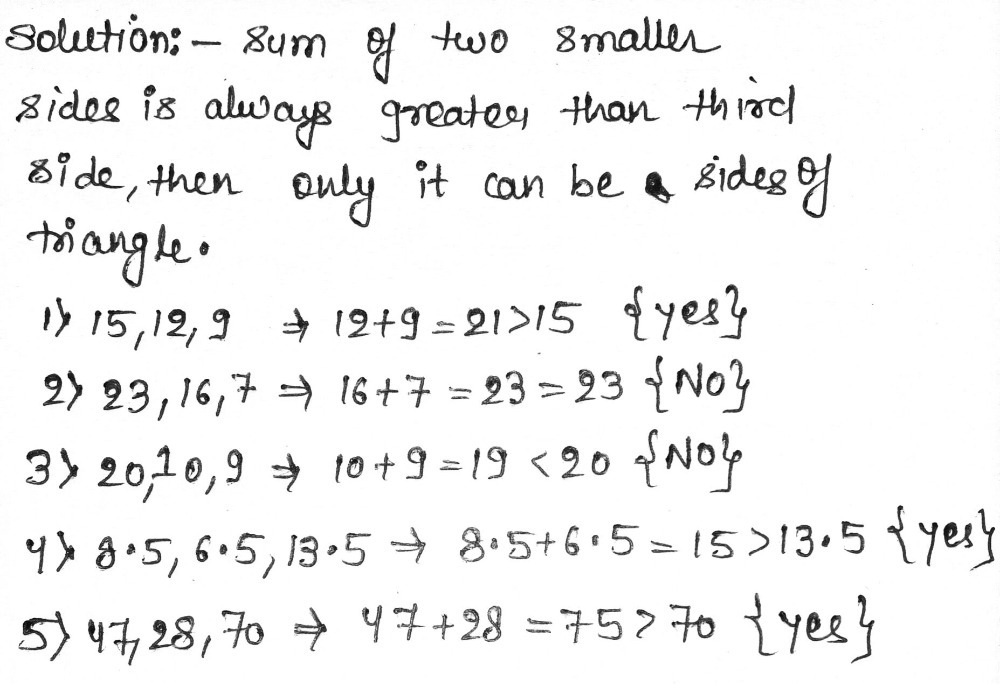 Solution:- Sum of two smaller
sides is always greater than third
side, then only it can be sides of
triangle.
1) 15, 12, 9 ⇒ 12+9=21>15 {yes}
2) 23, 16, 7 ⇒ 16+7=23=23 {NO}
3) 20, 10, 9 ⇒ 10+9=19<20 {NO}
4) 8.5, 6.5, 13.5 → 8.5+6.5=15>13.5 {yes}
5) 47, 28, 70 ⇒ 47+28=75>70 {yes}